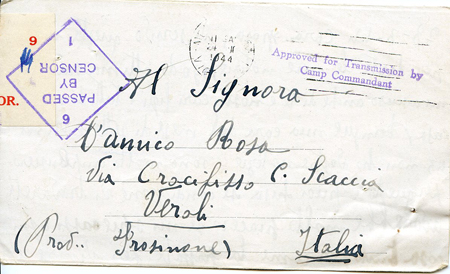 9
OR.
PASSED
BY
CENSOR
6
1
1944
Approved for Transmission by
Camp Commandant
Al Signora
D'amico Rosa
Via Crocifisso C. Scaccia
Veroli
(Prov.. Frosinone) Italia